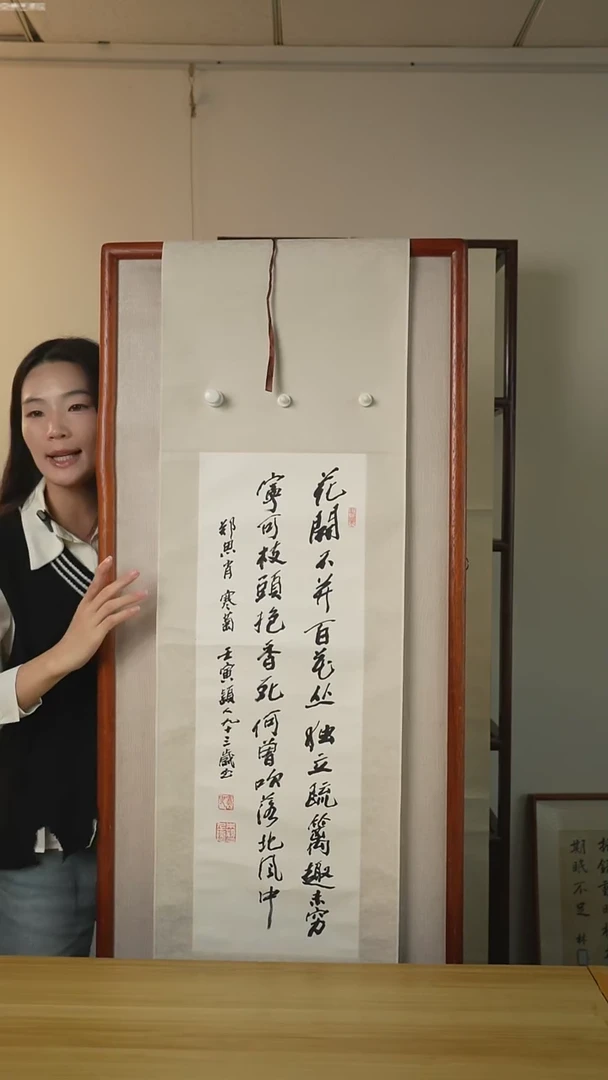 花開不并百花丛独立疏篱趣未穷
寧可枝頭抱香死何曾吹落北風中
郑思肖寒菊壬寅頴人九十三歲书
期眠不足